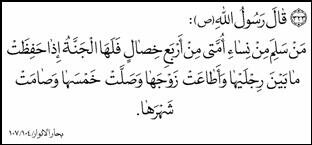 ﴿٣٢٣﴾ قَالَ رَسُولُ اللّٰهِ (ص):
مَنْ سَلِمَ مِنْ نِسَاءِ أُمَّتى مِنْ أَرْبَعِ خِصَالٍ فَلَهَا الْجَنَّةُ إِذَا حَفِظَتْ
مَا بَيْنَ رِجْلَيْهَا وَأَطَاعَتْ زَوْجَهَا وَصَلَّتْ خَمْسَهَا وَصَامَتْ
شَهْرَهَا.
بحارالانوار/١٠٤/١٠٧